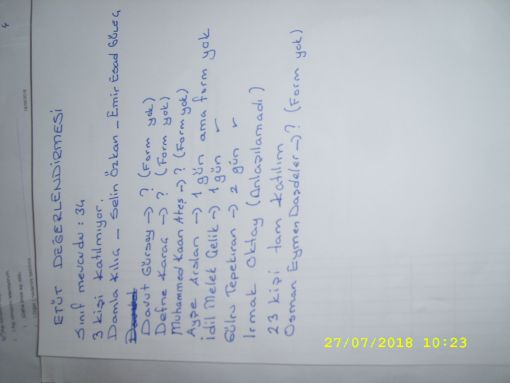 ETÜT DEĞERLENDİRMESİ
Sınıf mevcudu : 34
3 kişi katılmıyor.
Damla Kılıç - Selin Özkan - Emir Esad Güleç
Davut Gürsoy → ? (Form yok)
Defne Karaca → ? (Form yok)
Muhammed Kaan Ateş → ? (Form yok)
Ayşe Arslan → 1 gün ama form yok
İdil Melek Çelik → 1 gün ✓
Gülru Tepekıran → 2 gün ✓
Irmak Oktay (Anlaşılamadı)
23 kişi tam katılım
Osman Eymen Daşdeler → ? (Form yok)
27/07/2018 10:23